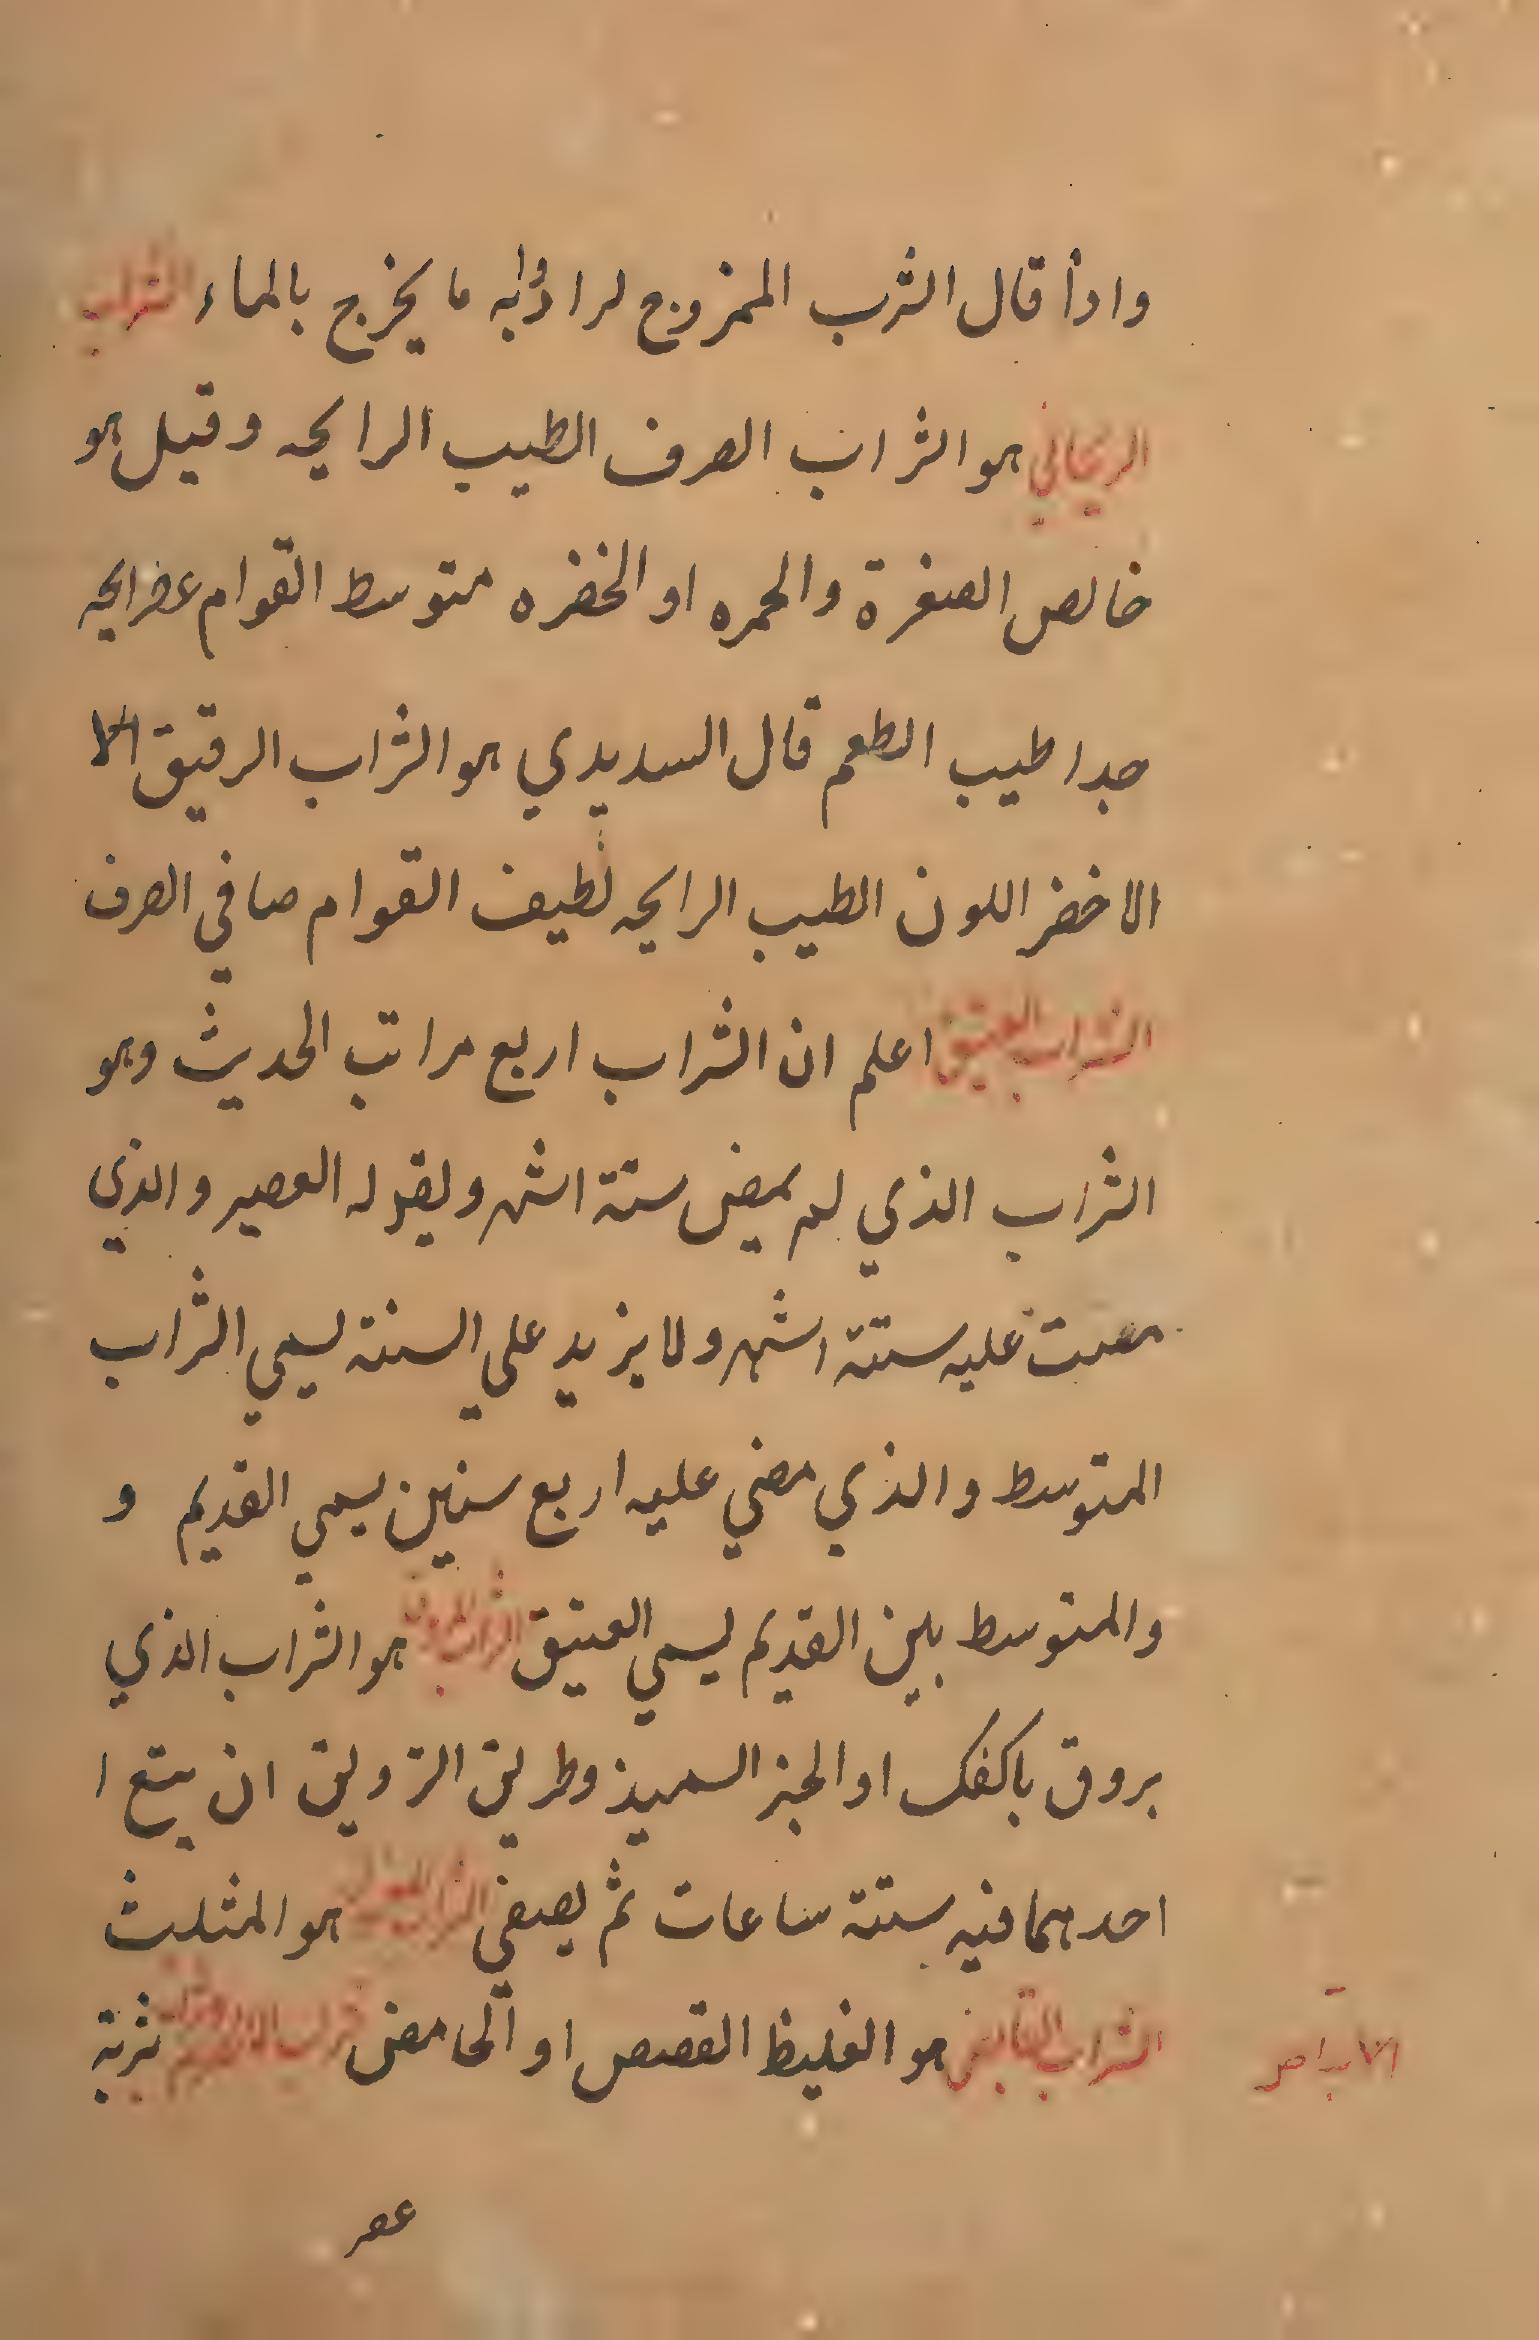 واداأ قال الشرب الممزوج لراد وابه ما يخرج بالماء الشراب
الريحاني هو الشراب الصرف الطيب الرايحه وقيل هو
خالص الصفرة والحمره او الخضره متوسط القوام عضرايحه
جدا طيب الطعم قال السديدي هو الشراب الرقيق الا
الاخضر اللون الطيب الرايحه لطيف القوام صافي الصرف
الشراب العتيق اعلم ان الشراب اربع مراتب الحديث وهو
الشراب الذي لم يمض ستة اشهر ويقوله العصير والذي
مضت عليه ستة اشهر ولا يزيد علي السنة يسمي الشراب
المتوسط والذي مضي عليه اربع سنين يسمي القديم و
والمتوسط بين القديم يسمي العتيق الشراب هو الشراب الذي
بروق باكفك او الخبز السميذ وطريق الترويق ان ينقع ا
احدهما فيه ستة ساعات ثم يصفي الشراب هو المثلث
الشراب القابض هو الغليظ القصص او الحامض شراب
عصر